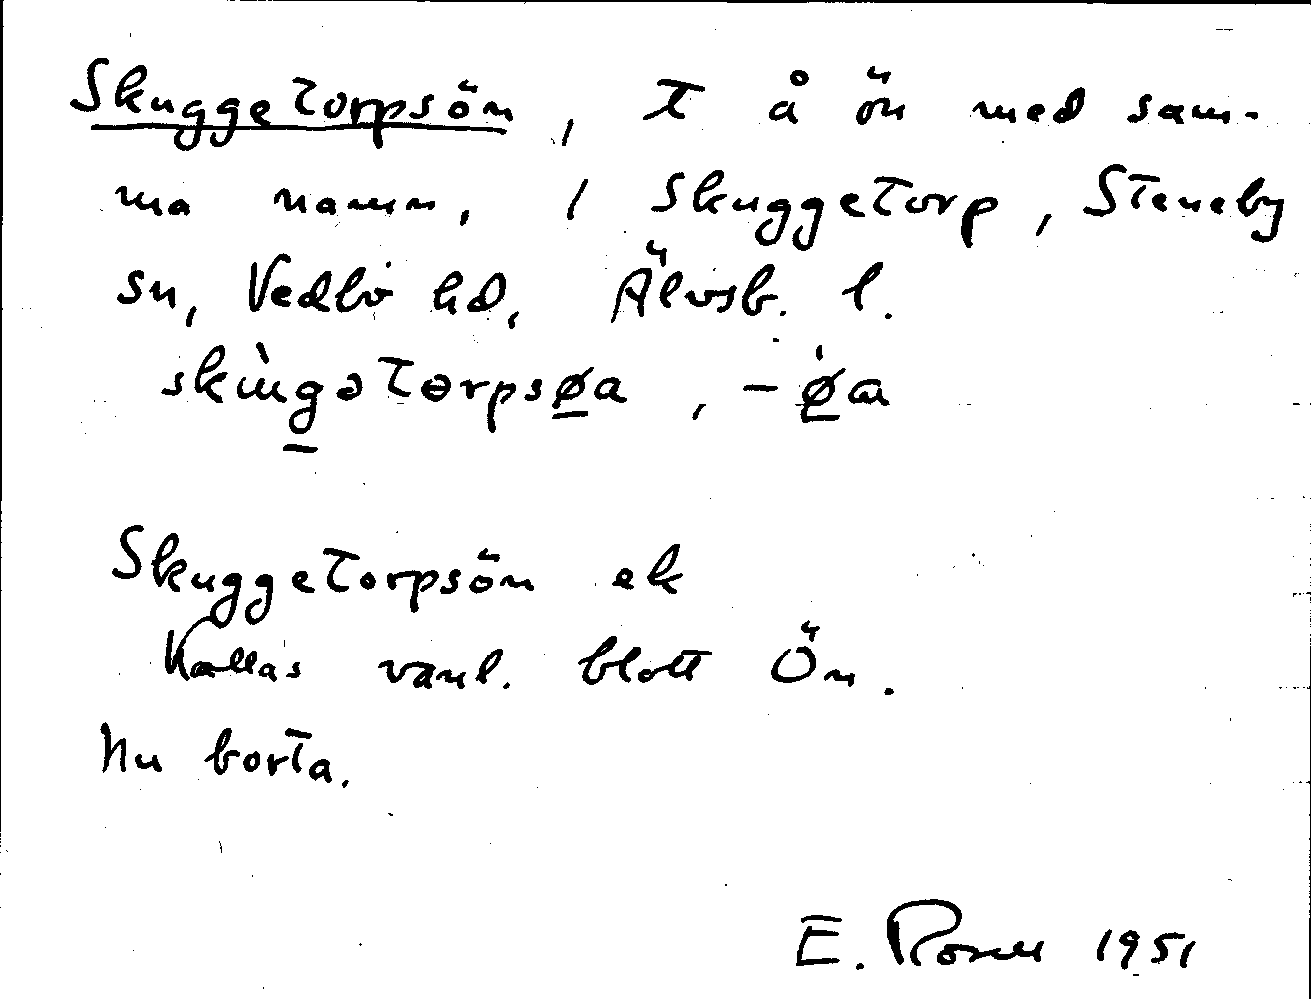 Skuggetorpsön, t å ön med sam-
ma namn, i Skuggetorp, Steneby
sn, Vedbo hd, Älvsb. l.
skùgətɵrpsøa, -øa
Skuggetorpsön ek
Kallas vanl. blott Ön.
Nu borta.
E. Rosell 1951